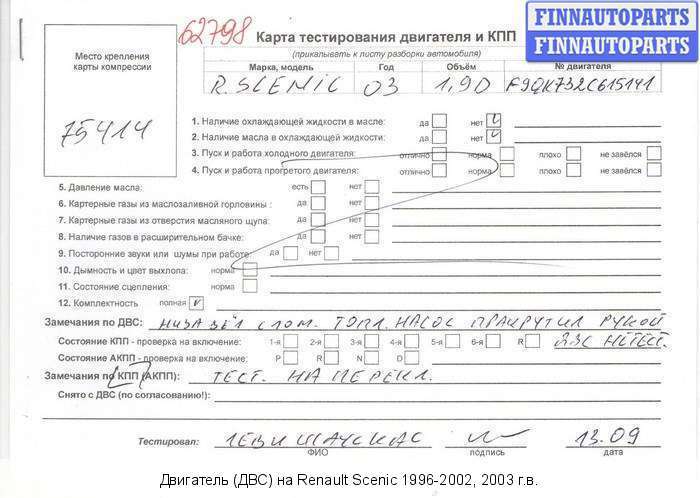 FINNAUTOPARTS
FINNAUTOPARTS
62798
Карта тестирования двигателя и КПП
(прикалывать к листу разборки автомобиля)
Место крепления
карты компрессии
75414
Марка, модель Год Объём № двигателя
R. SCENIC 03 1,9D F9QK732C615141
1. Наличие охлаждающей жидкости в масле: да нет
2. Наличие масла в охлаждающей жидкости: да нет
3. Пуск и работа холодного двигателя: отлично норма плохо не завёлся
4. Пуск и работа прогретого двигателя: отлично норма плохо не завёлся
5. Давление масла: есть нет
6. Картерные газы из маслозаливной горловины : да нет
7. Картерные газы из отверстия масляного щупа: да нет
8. Наличие газов в расширительном бачке: да нет
9. Посторонние звуки или шумы при работе: да нет
10. Дымность и цвет выхлопа: норма
11. Состояние сцепления: норма
12. Комплектность полная V
Замечания по ДВС: слом. топл. насос прокрутил рукой
Состояние КПП - проверка на включение: 1-я 2-я 3-я 4-я 5-я 6-я R ДВС не тест.
Состояние АКПП - проверка на включение: P R N D
Замечания по КПП (АКПП): тест. на перекл.
Снято с ДВС (по согласованию!):
Тестировал: 13.09
ФИО подпись дата
Двигатель (ДВС) на Renault Scenic 1996-2002, 2003 г.в.